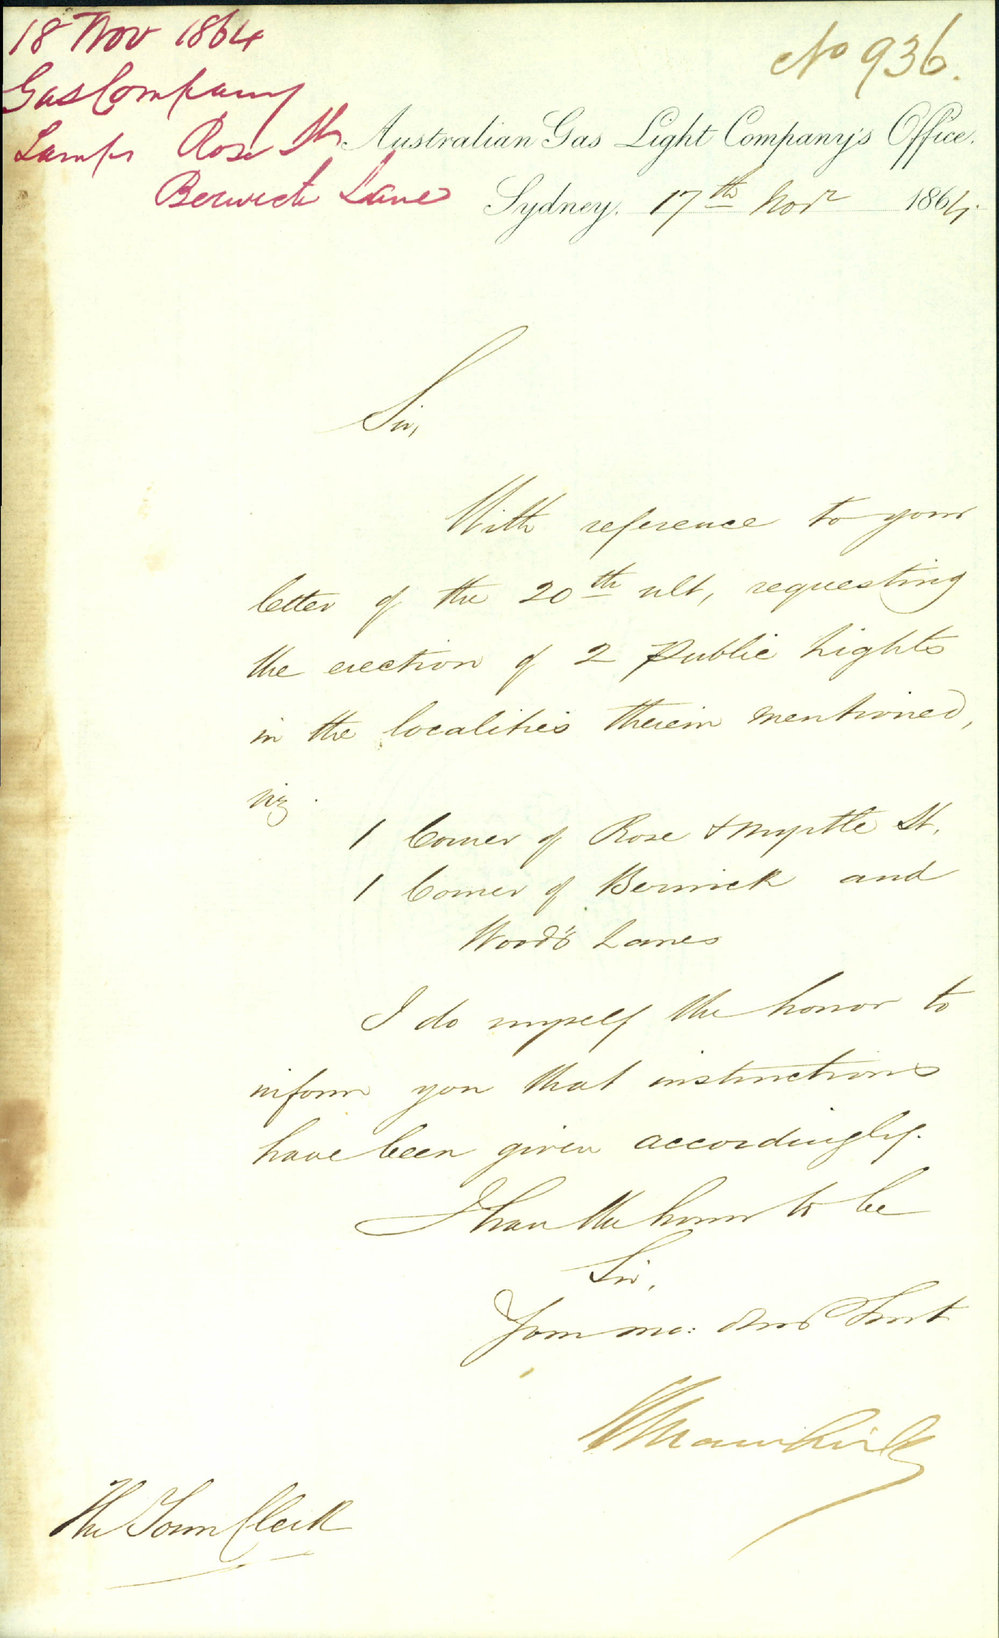 18 Nov 1864
Gas Company
Lamps Rose St
Berwick Lane
No 936.
Australian Gas Light Company's Office.
Sydney, 17th Novr 1864.
Sir,
With reference to your
letter of the 20th ult, requesting
the erection of 2 Public Lights
in the localities therein mentioned,
viz.
1 Corner of Rose & Myrtle St.
1 Corner of Berwick and
Wood's Lanes
I do myself the honor to
inform you that instructions
have been given accordingly.
I have the honor to be
Sir,
Your mo: Obed Servt
The Town Clerk